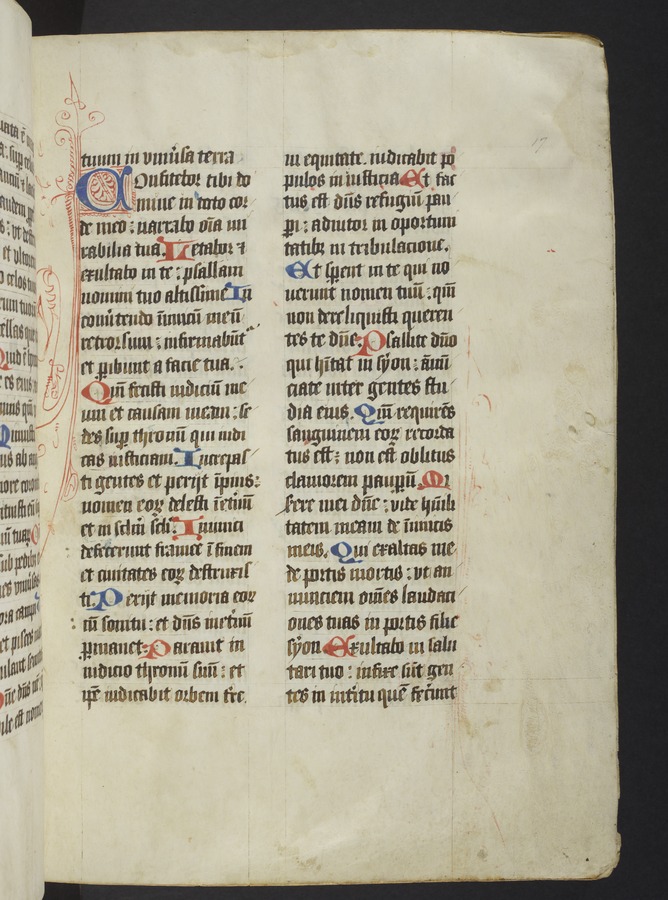 tuum in vniu̅sa terra
Confitebor tibi do
mine in toto cor
de meo : narrabo o̅ia mi
rabilia tua. Letabor ⁊
exultabo in te : psallam
nomini tuo altissime In
conu̅tendo i̅nimicu̅ meu̅
retrorsum : infirmabu̅t᷒
et ꝑibunt a facie tua.
Qm̅ fecisti iudiciu̅ me
um et causam meam : se
des suꝑ thronu̅ qui iudi
cas iusticiam. Increpas
ti gentes et perijt i̅pius :
nomen eoꝝ delesti i̅et̅nu̅
et in sc̅lm̅ sc̅li. Inimici
defecerunt framee i̅ finem
et ciuitates eoꝝ destruxis
ti. Perijt memoria eor
cu̅ sonitu : et dn̅s inet̅nu̅
ꝑmanet. Parauit in
iudicio thronu̅ suu̅ : et
ip̅e iudicabit orbem t̅re
in equitate. iudicabit po
pulos in iusticia Et fac
tus est dn̅s refugiu̅ pau
ꝑi : adiutor in oportuni
tatibꝫ in tribulacione.
Et sperent in te qui no
uerunt nomen tuu̅ : qm̅
non dereliquisti queren
tes te dn̅e. Psallite dn̅o
qui h̅itat in syon : a̅nu̅
ciate inter gentes stu
dia eius. Qm̅ require̅s
sanguinem eoꝝ recorda
tus est : non est oblitus
clamorem pauꝑu̅. Mi
serere mei dn̅e : vide hu̅ili
tatem meam de i̅nimicis
meis. Qui exaltas me
de portis mortis : vt an
nunciem om̅es laudaci
ones tuas in portis filie
syon Exultabo in salu
tari tuo : infixe su̅t gen
tes in int̅itu que̅ fecerunt
17